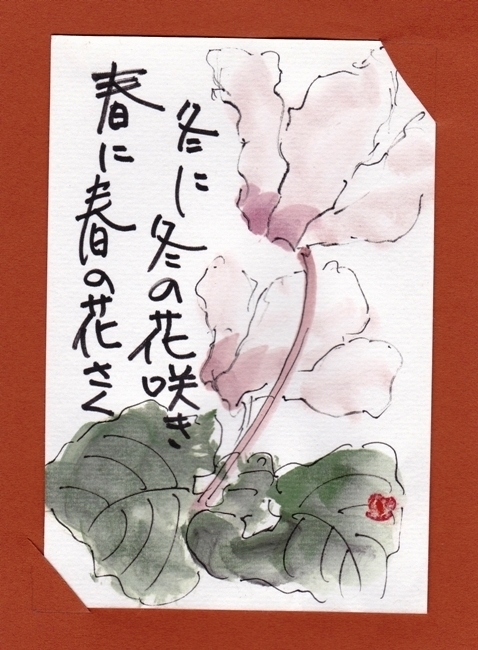 冬に冬の花咲き
春に春の花さく